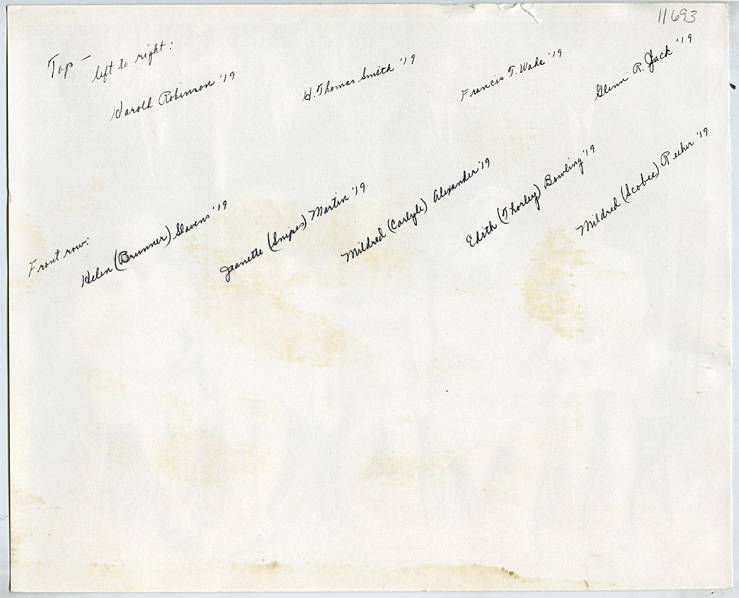 11693
Top - left to right:
Harold Robinson '19
H. Thomas Smith '19
Francis T. Wade '19
Glenn R. Jack '19
Front row:
Helen (Brunner) Slavens '19
Jeanette (Snipes) Martin '19
Mildred (Carlyle) Alexander '19
Edith (Thorley) Bowling '19
Mildred (Scobee) '19